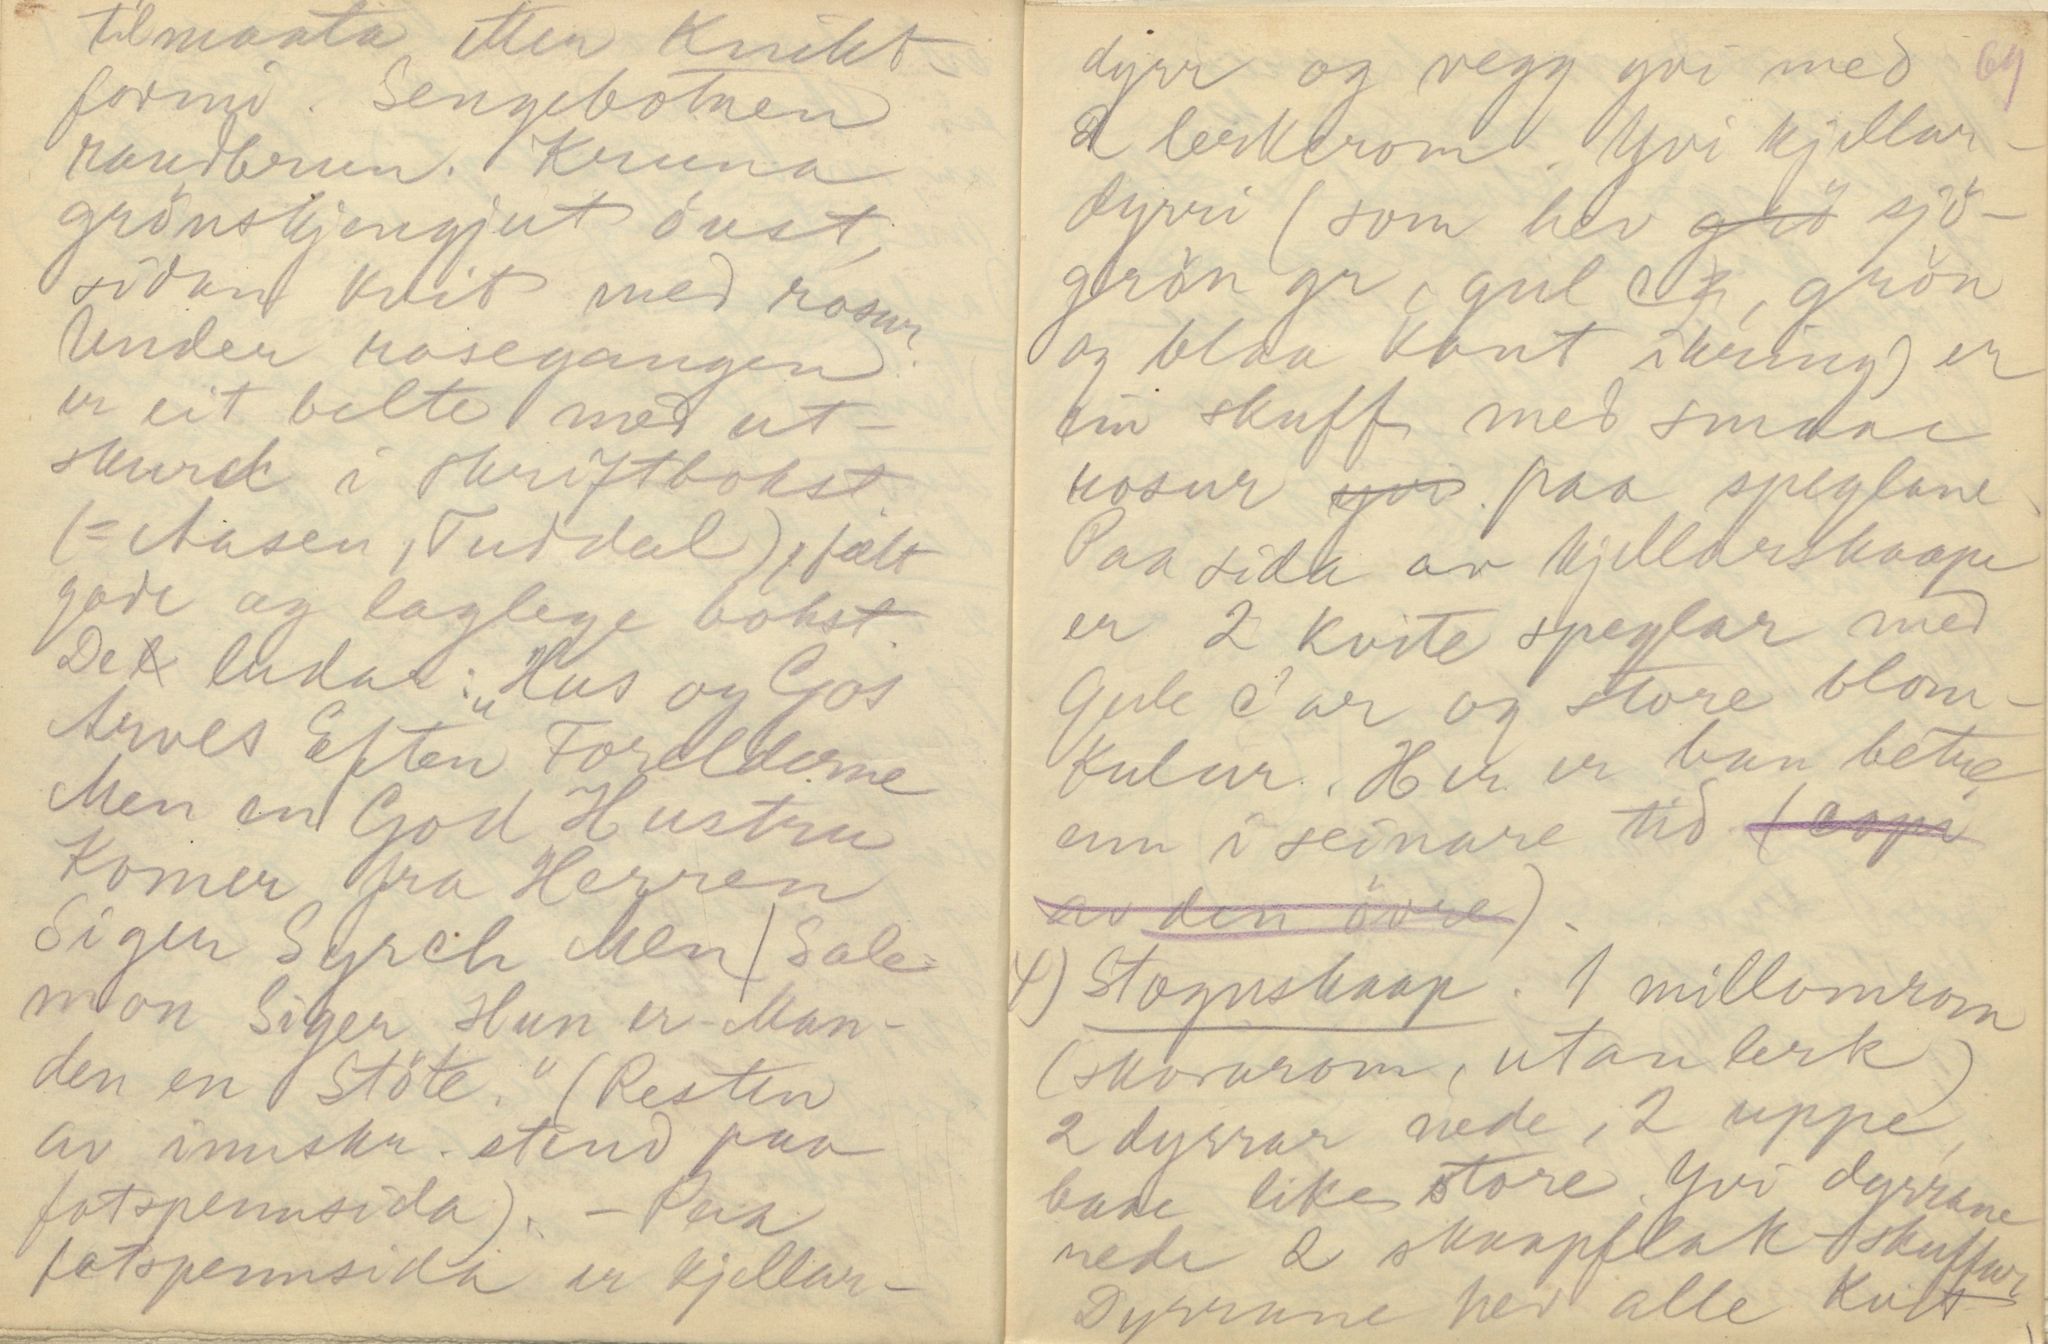 tilmaata etter Knikt-
formi. Sengebotnen
raudbrun. Kruna
grönskjengjut övst,
sidan kvit med rosur.
Under rosegangen
er eit belte med ut-
skurd i skriftbokst
(= Aasen, Tuddal), fælt
gode og laglege bokst.
De ludar: "Hus og Gos
Arves Efter Forelderne
Men en God Hustru
Komer fra Herren
Siger Syrch Men / Sale-
mon Siger Hun er Man-
den en Stöte." (Resten
av innskr. stend paa
fotspennsida). - Paa
fotspennsida er kjellar-
69
dyrr og vegg yvi med
2 lerkerom. Yvi kjellar-
dyrri (som hev grö sjö-
grön gr, gul C, grön
og blaa kant ikring) er
ein skuff med smaae
rosur yvi paa speglane.
Paa sida av kjellarskaape
er 2 kvite speglar med
Gule C'ar og store blom-
kulur. Her er han betre
enn i seinare tid (copi
av den övre).
4) Stoguskaap. 1 millomrom
(skovarom, utan lerk)
2 dyrrar nede, 2 uppe,
baae like store. Yvi dyrrane
nede 2 skaapflak-skuffur
Dyrrane hev alle kvit